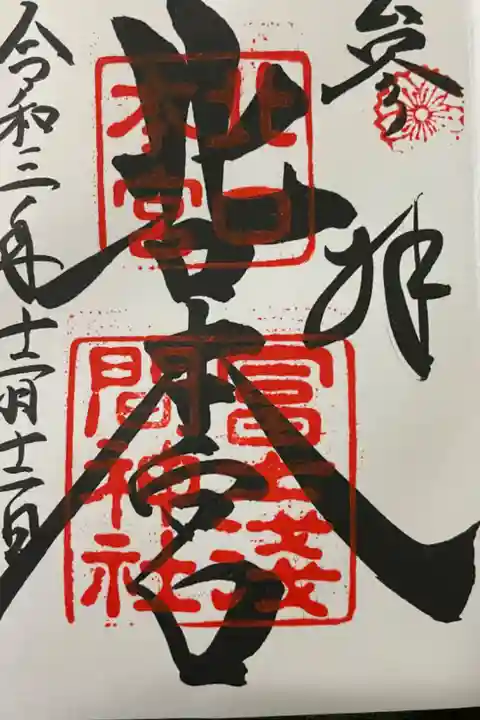 参拝
北口本宮
北口
本宮
冨士浅
間神社
令和三年十二月十二日